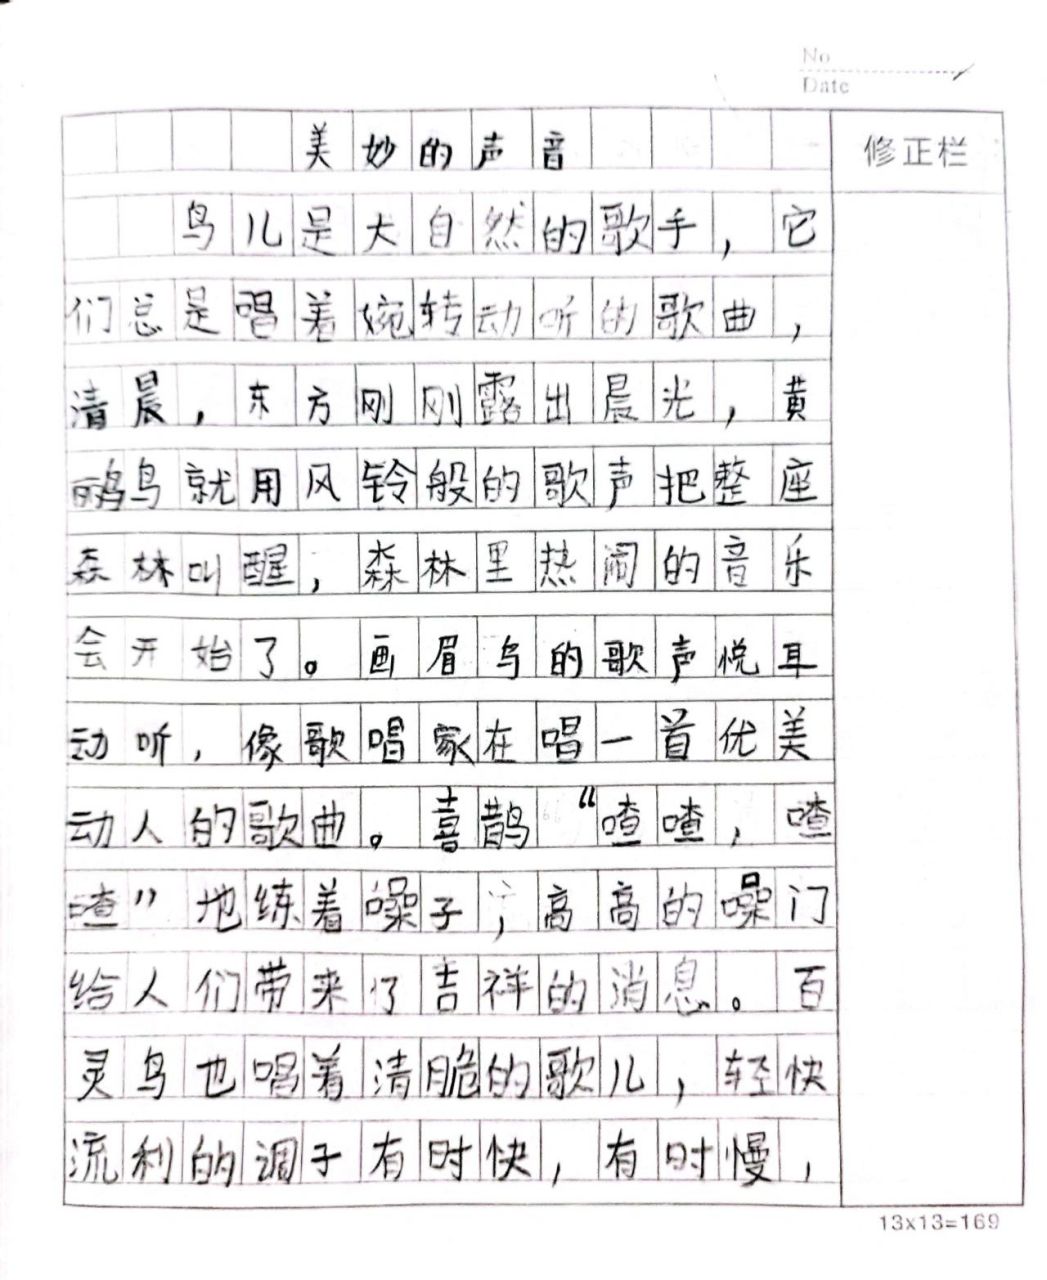 No
Date
美妙的声音
修正栏
鸟儿是大自然的歌手，它
们总是唱着婉转动听的歌曲，
清晨，东方刚刚露出晨光，黄
鹂鸟就用风铃般的歌声把整座
森林叫醒，森林里热闹的音乐
会开始了。画眉鸟的歌声悦耳
动听，像歌唱家在唱一首优美
动人的歌曲。喜鹊“喳喳，喳
喳”地练着噪子，高高的噪门
给人们带来了吉祥的消息。百
灵鸟也唱着清脆的歌儿，轻快
流利的调子有时快，有时慢，
13x13=169